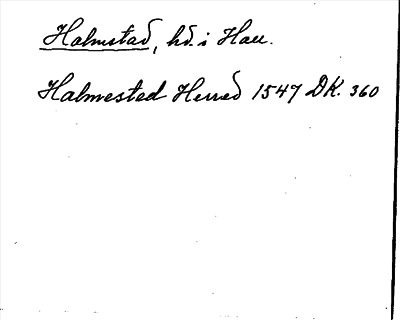 Halmstad, hd. i Hall.
Halmested Herred 1547 DK. 360